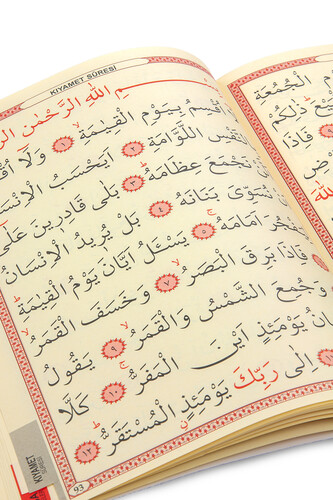 KIYAMET SÛRESİ
مِ اللّٰهِ الرَّحْمٰنِ الر
اُقْسِمُ بِيَوْمِ الْقِيٰمَةِ ﴿١﴾ وَلَٓا اُقْ
النَّفْسِ اللَّوَّامَةِ ﴿٢﴾ اَيَحْسَبُ الْاِنْسَا
نْ نَجْمَعَ عِظَامَهُ ﴿٣﴾ بَلٰى قَادِرٖينَ عَلٰٓى
نُسَوِّىَ بَنَانَهُ ﴿٤﴾ بَلْ يُرٖيدُ الْاِنْسَانُ
فْجُرَ اَمَامَهُ ﴿٥﴾ يَسْـَٔلُ اَيَّانَ يَوْمُ الْقِيٰمَةِ
فَاِذَا بَرِقَ الْبَصَرُ ﴿٧﴾ وَخَسَفَ الْقَمَرُ
وَجُمِعَ الشَّمْسُ وَالْقَمَرُ ﴿٩﴾ يَقُولُ
نُ يَوْمَئِذٍ اَيْنَ الْمَفَرُّ ﴿١٠﴾ كَلَّا
اِلٰى رَبِّكَ يَوْمَئِذٍ الْمُسْتَقَرُّ ﴿١٢﴾
93
KIYAMET
SÛRESİ
الْجُمُعَةِ
ذٰلِكُمْ
فَاِذَا